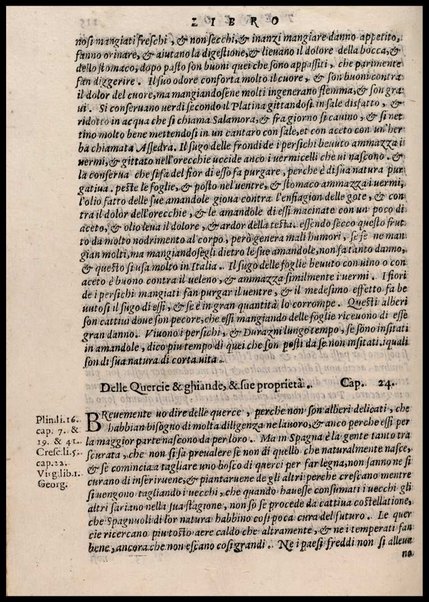 LIBRO
nosi mangiati freschi, & non secchi, & inanzi mangiare danno appetito,
fanno orinare, & aiutano la digestione, & lieuano il dolore della bocca, &
dello stomaco, dopo pasto son buoni quei che sono appassiti, che parimente
fan diggerire. Il suo odore conforta molto il cuore, & son buoni contra
il dolor del cuore, ma mangiandosene molti ingenerano flemma, & son gra
ui. Si conseruano uerdi secondo il Platina gittandosi in sale disfatto, &
ridotto in acqua che si chiama Salamora, & fra giorno si cauino, & si net
tino molto bene mettendosi in un cantaro con sale, et con aceto con un'her
ba chiamata Assedra. Il sugo delle frondi de i persichi beuuto ammazza i
uermi, & gittato nell'orecchie uccide anco i uermicelli che ui nascono. &
la conserua che si fa del fior di esso fa purgare, perche è di sua natura pur
gatiua. peste le foglie, & posto nel uentre, & stomaco ammazza i uermi,
l'olio fatto delle sue amandole gioua contra l'enfiagion delle gote, & con
tra il dolor dell'orecchie, & le amandole di essi macinate con un poco di
aceto, & olio leua il dolore, & ardor della testa. essendo secco questo frut
to da molto nodrimento al corpo, però genera mali humori, se se ne man-
gian molti, ma mangiandosegli dietro le sue amandole, non fa tanto danno,
& questo si usa molto in Italia. Il sugo delle foglie beuuto con uino o con
aceto è buono contra il ueleno, & ammazza similmente i uermi. I fiori
de i persichi mangiati fan purgar il uentre, & il medesimo effetto fa be
uutosi il sugo di essi, & se è in gran quantità lo corrompe. Questi alberi
son cattiui doue son pecore, che essi mangiando delle foglie riceuono di esse
gran danno. Viuono i persichi, & Durazni lungo tempo, se sono insitati
in amandole, dico piu tempo di quei che son posti da se non insitati, iquali
son di sua natura di corta uita.
Delle Quercie & ghiande, & sue proprietà. Cap. 24.
Plin.li.16.
cap. 7. &
19. & 41.
Cresc.li.5.
cap.22.
Virg.lib.1.
Georg.
BReuemente uo dire delle querce, perche non son alberi delicati, che
habbian bisogno di molta diligenza ne lauoro, & anco perche essi per
la maggior parte nascono da per loro. Ma in Spagna è la gente tanto tra
scurata, che non si sa preualere se non di quello che naturalmente nasce,
& se comincia a tagliare uno bosco di querci per far legna, non sanno ne si
curano di inserirue ne, & piantarue ne de gli altri perche crescano mentre
si uengono tagliando i uecchi, che quando hauesse consumati i uecchi gli
altri sariano nella sua stagione, non so se procede da cattiua costellatione,
che Spagnuoli di lor natura habbino cosi poca cura del futuro. Le quer
cie ricercano piu tosto aere caldo che altramente, & ne i temperati fan
bene, ancora che non escano cosi grandi. Ne i paesi freddi non si alleue
ra-